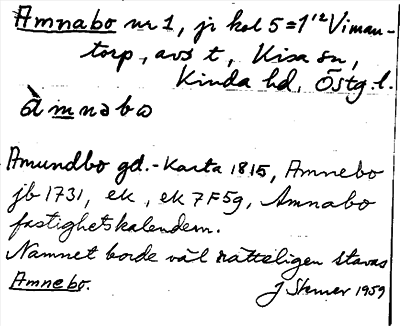 Amnabo nr 1, jr kol 5 = 1/12 Viman-
torp, avs t, Kisa sn,
Kinda hd, Östg. l.
àmnəbω
Amundbo gd. - Karta 1815, Amnebo
jb 1731, ek, ek 7F5g, Amnabo
fastighetskalendern.
Namnet borde väl rätteligen stavas
Amnebo. J Stemer 1959